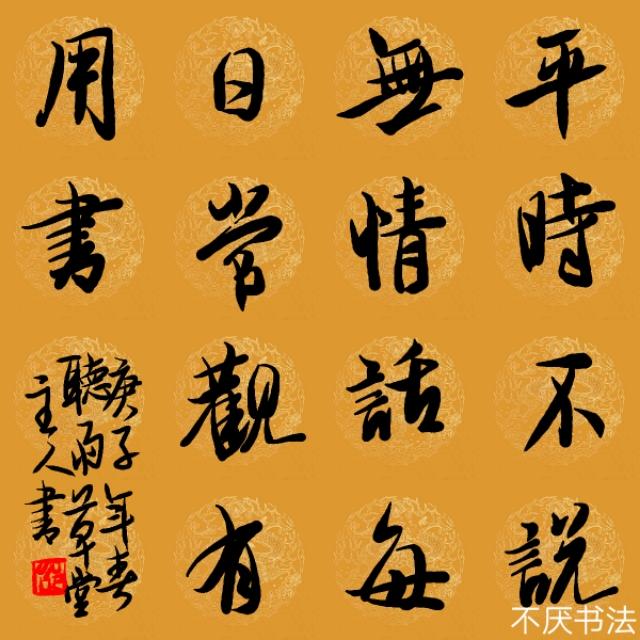 平時不說
無情話每
日常觀有
用書
庚子年春
聽雨草堂
主人書
不厌书法